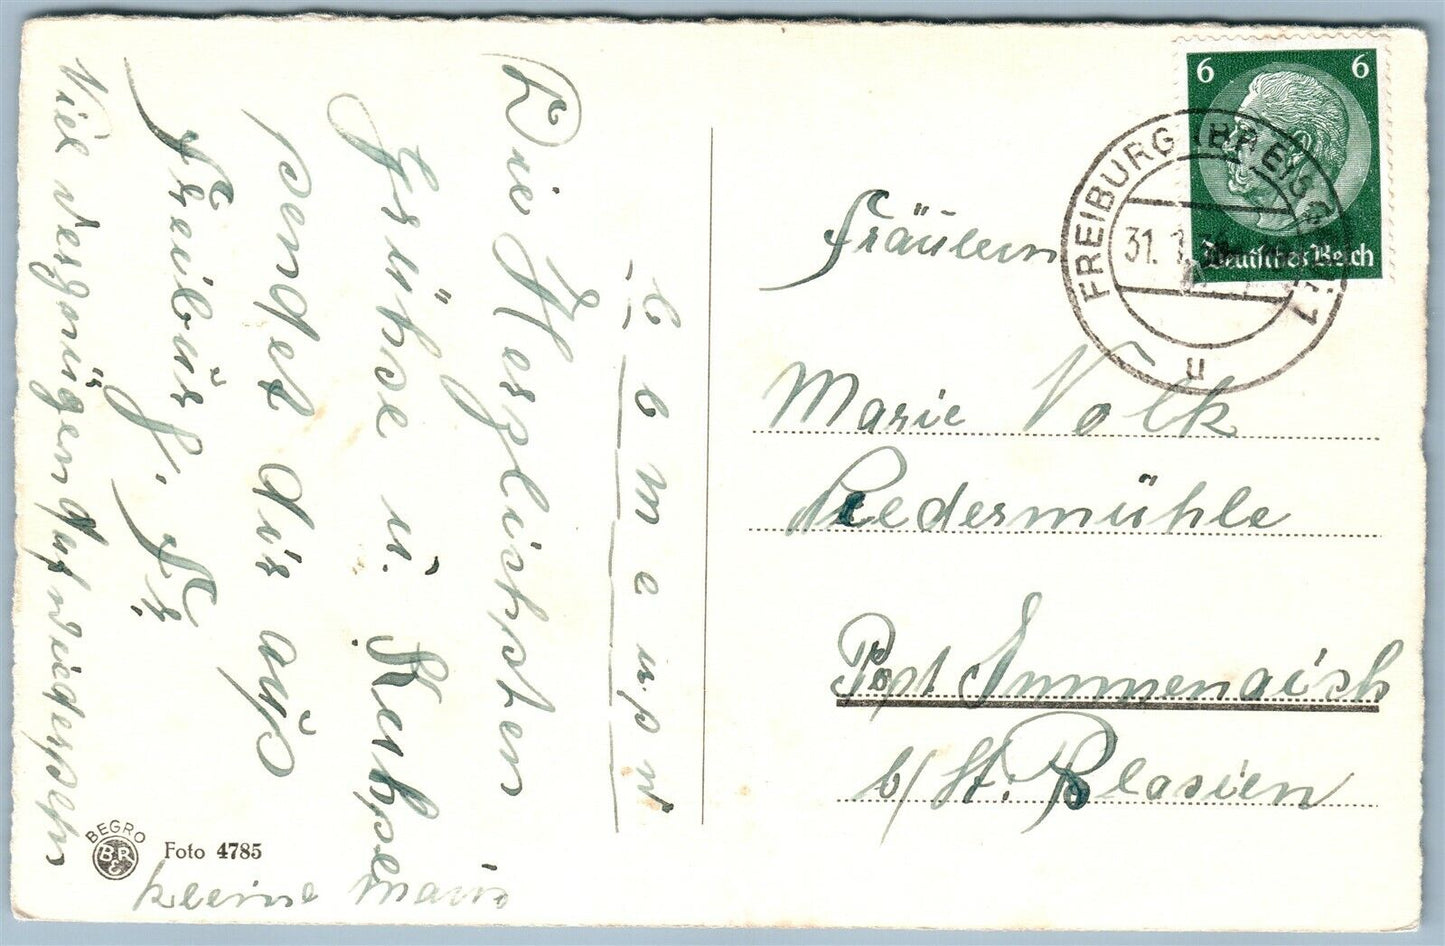 Die Herzlichsten
Grühse u.
sendet dir aus
Freiburg. Fr.
Viel vergnügen Auf wiedersehn
kleine
BEGRO
Foto 4785
Fräulein
Marie Volk
Ledermühle
Post Immeneich
b/ St. Blasien
6 6
Deutsches Reich
FREIBURG (BREISGAU) 1
31. 1.
u